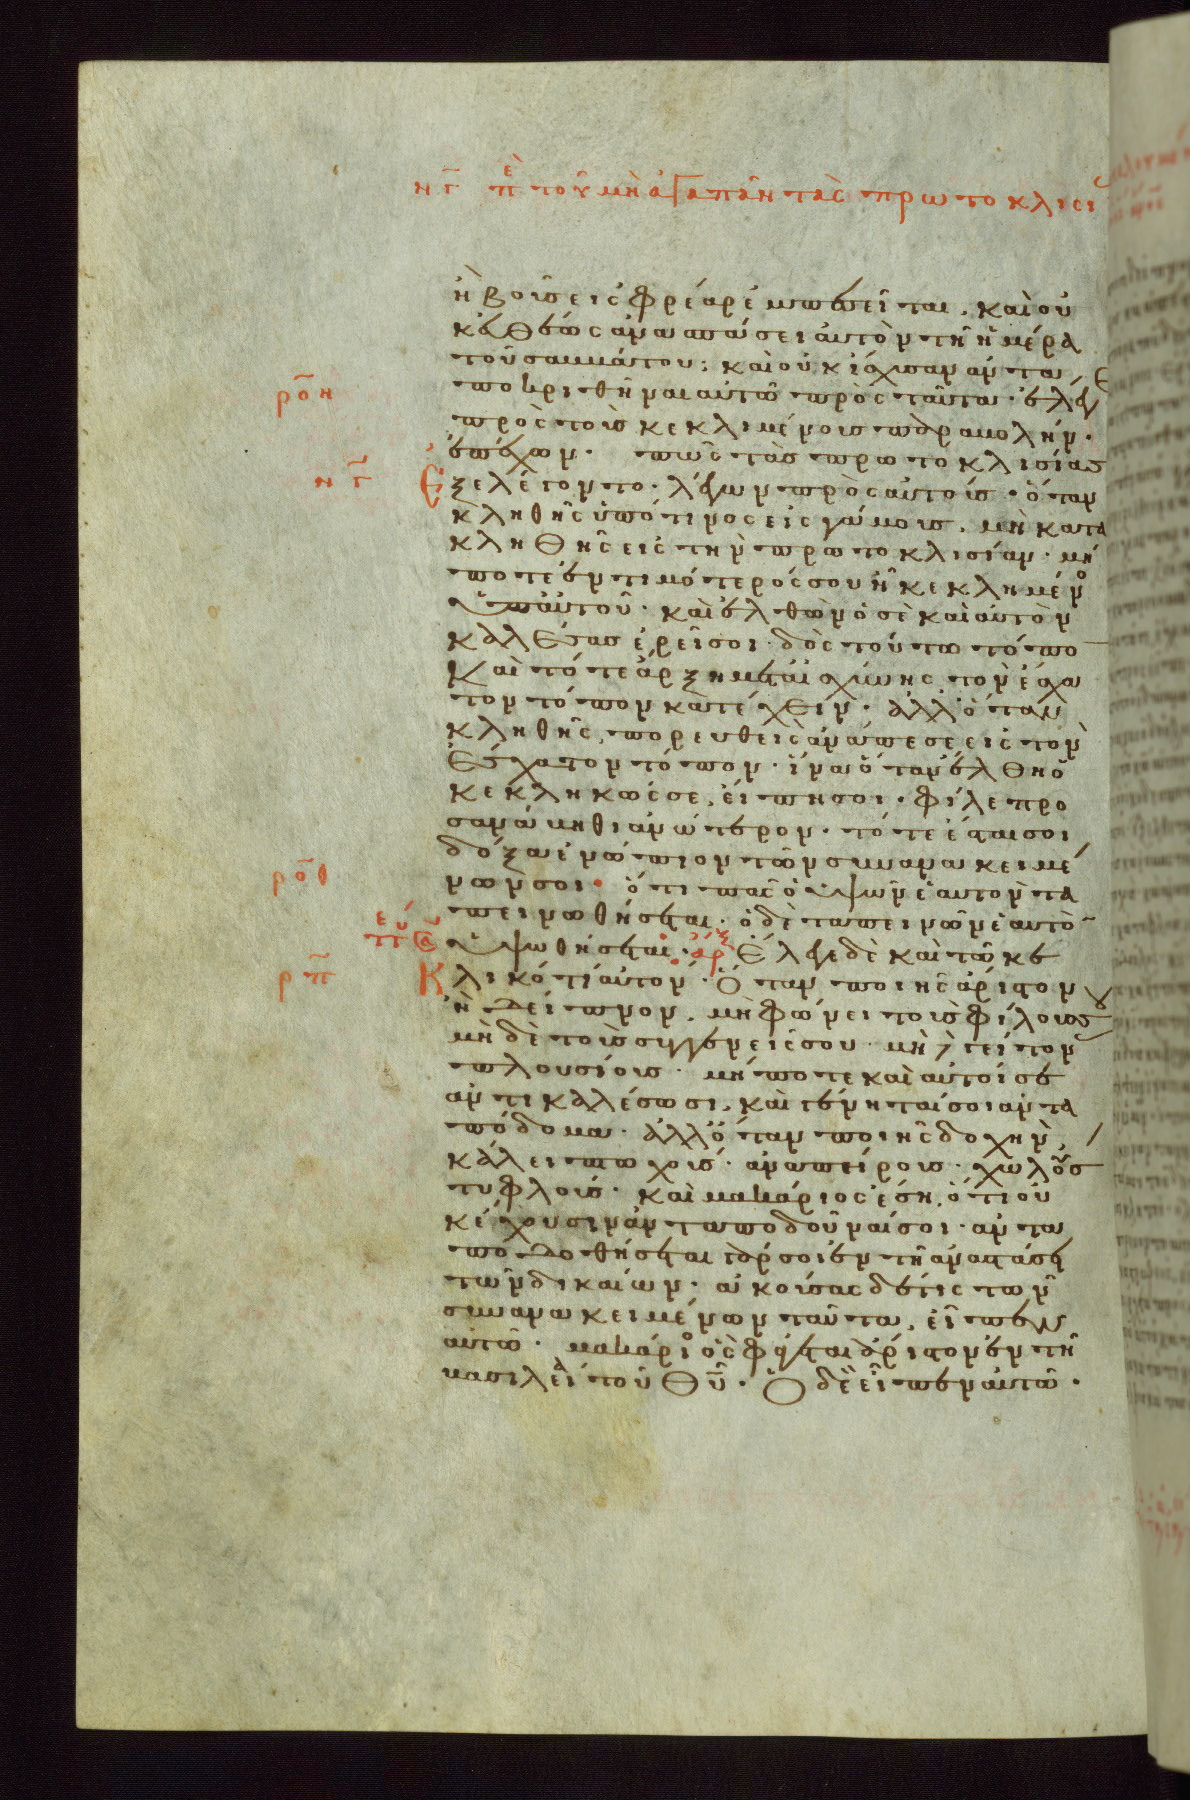 νγ πε τοῦ μὴ ἀγαπᾶν τὰς πρωτοκλισί
ἢ βοῦς εἰς φρέαρ ἐμπεσεῖται. καὶ οὐ
κ εὐθέως ἀνασπάσει αὐτὸν τῆ ἡμέρα
τοῦ σαββάτου; καὶ οὐκ ἴσχυσαν ἀντα
ροη
ποκριθῆναι αὐτῶ πρὸς ταῦτα. ἔλεγε
πρὸς τοὺς κεκλιμένους παραβολήν.
ἐπέχων. πῶς τὰς πρωτοκλισίας
νγ
ἐξελέγοντο. λέγων πρὸς αὐτούς. ὅταν
κληθῆς ὑπό τινος εἰς γάμους. μὴ κατα
κληθῆς εἰς τὴν πρωτοκλισίαν. μή
ποτε ἐντιμότερός σου ἦ κεκλημέν
ὑπ αὐτοῦ. καὶ ἐλθὼν ὁ σὲ καὶ αὐτὸν
καλέσας ἐρεῖ σοι. δὸς τούτω τόπο
Καὶ τότε ἄρξη μετ αἰσχύνης τὸν ἔσχα
τον τόπον κατέχειν. ἀλλ ὅταν
κληθῆς, πορευθεὶς ἀνάπεσε εἰς τὸν
ἔσχατον τόπον. ἵνα ὅταν ἔλθη ὁ
κεκληκώς σε, εἴπη σοι. φίλε προ
σανάβηθι ἀνώτερον. τότε ἔσται σοι
δόξα ἐνώπιον τῶν συνανακειμέ
ροθ
νων σοι. ὅτι πᾶς ὁ ὑψῶν ἑαυτὸν τα
πεινωθήσεται. ὁ δὲ ταπεινῶν ἑαυτὸ
ὑψωθήσεται. ἀρξ Ἔλεγε δὲ καὶ τῶ κε
ρπ
Κλικότι αὐτόν. Ὅταν ποιῆς ἄριστον
ἢ δεῖπνον. μὴ φώνει τοὺς φίλους σου
μὴ δὲ τοὺς συγγενεῖς σου. μὴ δὲ γείτον
πλουσίους. μή ποτε καὶ αὐτοί σε
ἀντικαλέσωσι. καὶ γένηταί σοι ἀντα
πόδομα. ἀλλ ὅταν ποιῆς δοχὴν,
κάλει πτωχούς. ἀναπήρους. χωλοὺς
τυφλούς. καὶ μακάριος ἔση, ὅτι οὐ
κ ἔχουσιν ἀνταποδοῦναί σοι. ἀντα
ποδοθήσεται γάρ σοι ἐν τῆ ἀναστάσει
τῶν δικαίων. ἀκούσας δέ τις τῶν
συνανακειμένων ταῦτα. εἶπεν
αὐτῶ. μακάριος ὃς φάγεται ἄριστον ἐν τῆ
βασιλεία τοῦ θυ. Ὁ δὲ εἶπεν αὐτῶ.